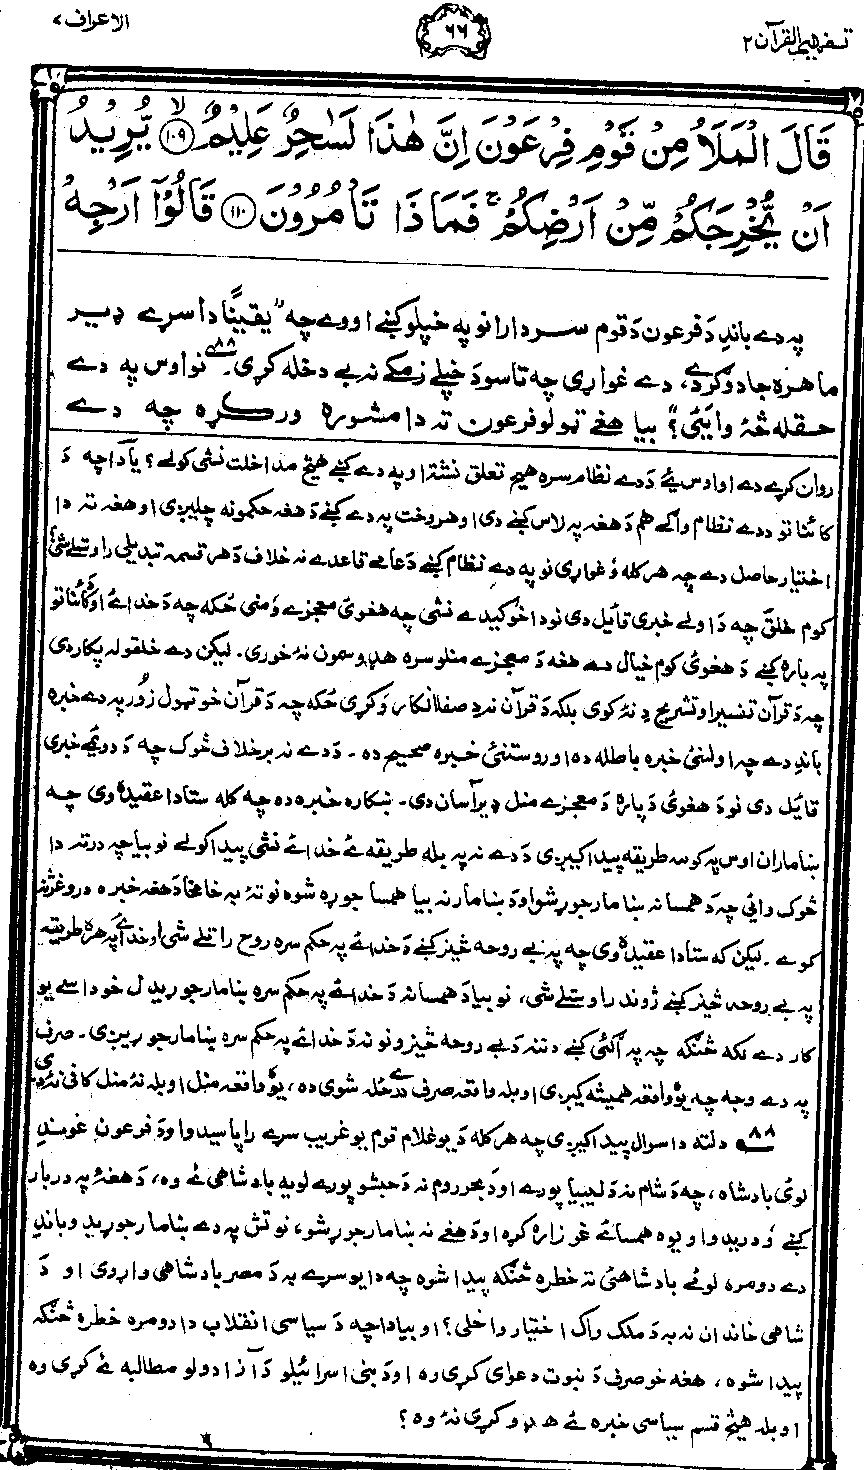 تفهیم القرآن ۲
۶۶
الاعراف ۷
قَالَ الْمَلَاُ مِنْ قَوْمِ فِرْعَوْنَ اِنَّ هٰذَا لَسٰحِرٌ عَلِیْمٌ ۙ﴿۱۰۹﴾ یُّرِیْدُ
اَنْ یُّخْرِجَكُمْ مِّنْ اَرْضِكُمْ ۚ فَمَاذَا تَاْمُرُوْنَ ﴿۱۱۰﴾ قَالُوْۤا اَرْجِهْ
په دے باندِ دَ فرعون دَ قوم سردارانو په خپلو کښے اووے چه "یقینًا دا سړے ډیر
ماهره جادوګر دے، دے غواړی چه تاسو دَ خپلے زمکے نه بے دخله کړی۔ ۸۸ نو اوس په دے
حقله څهٔ وایٔی؟" بیا هغے ټولو فرعون ته دا مشوره ورکړه چه دے
روان کړے دے او اوس ئے دَ دے نظام سره هیڅ تعلق نشته او په دے کښے هیڅ مداخلت نشی کولے؟ یا دا چه دَ
کائناتو د دے نظام واګے هم دَ هغه په لاس کښے دی او هر وخت په دے کښے دَ هغه حکمونه چلیږی او هغه ته دا
اختیار حاصل دے چه هر کله وَغواړی نو په دے نظام کښے دَ عامے قاعدے نه خلاف دَ هر قسمه تبدیلی راوستلے شی؟
کوم خلق چه دَ اولے خبری قایٔل دی نو دا خو کیدے نشی چه هغوی معجزے وَمنی ځکه چه دَ خدائے او دَ کائناتو
په باره کښے دَ هغوی کوم خیال دے هغه دَ معجزے منلو سره هډو سمون نهٔ خوری۔ لیکن دے خلقو له پکار دی
چه دَ قرآن تفسیر او تشریح دِ نهٔ کوی بلکه دَ قرآن نه دِ صفا انکار وَکړی ځکه چه دَ قرآن خو ټول زور په دے خبره
باندِ دے چه اولنئ خبره باطله ده او روستنئ خبره صحیح ده۔ دَ دے نه برخلاف څوک چه دَ دویٔمے خبری
قایٔل دی نو دَ هغوی دَ پاره دَ معجزے منل ډیر آسان دی۔ ښکاره خبره ده چه کله ستا دا عقیده وی چه
ښاماران اوس په کومه طریقه پیدا کیږی دَ دے نه په بله طریقه ئے خدائے نشی پیدا کولے نو بیا چه درته دا
څوک وائی چه دَ همسا نه ښامار جوړ شو او دَ ښامار نه بیا همسا جوړه شوه نو تهٔ به خامخا دَ هغه خبره دروغ ګڼے
کوے۔ لیکن که ستا دا عقیده وی چه په بے روحه څیز کښے دَ خدائے په حکم سره روح راتلے شی او خدائے په هره طریقه
په بے روحه څیز کښے ژوند راوستلے شی، نو بیا دَ همسا نه دَ خدائے په حکم سره ښامار جوړیدل خو داسے یو
کار دے لکه څنګه چه په اګئ کښے دننه دَ بے روحه څیزونو نه دَ خدائے په حکم سره ښامار جوړیږی۔ صرف
په دے وجه چه یوه واقعه همیشه کیږی او بله واقعه صرف درے ځله شوی ده، یوه واقعه منل او بله نهٔ منل کافی نهٔ دی
۸۸ دلته دا سوال پیدا کیږی چه هر کله دَ یو غلام قوم یو غریب سړے راپاسید او دَ فرعون غوندِ
لوئ بادشاه، چه دَ شام نه دَ لیبیا پورے او دَ بحر روم نه دَ حبشو پورے لویه بادشاهی ئے وه، دَ هغهٔ په دربار
کښے وَدرید او یوه همسا ئے غوزاره کړه او دَ هغے نه ښامار جوړ شو، نو تش په دے ښامار جوړیدو باندِ
دے دومره لوئے بادشاهئ ته خطره څنګه پیدا شوه چه دا یو سړے به دَ مصر بادشاهی واړوی او دَ
شاهی خاندان نه به دَ ملک واک اختیار واخلی؟ او بیا دا چه دَ سیاسی انقلاب دا دومره خطره څنګه
پیدا شوه، هغه خو صرف دَ نبوت دعوای کړی وه او دَ بنی اسرائیلو دَ آزادولو مطالبه ئے کړی وه
او بله هیڅ قسم سیاسی خبره ئے هډو کړی نهٔ وه؟